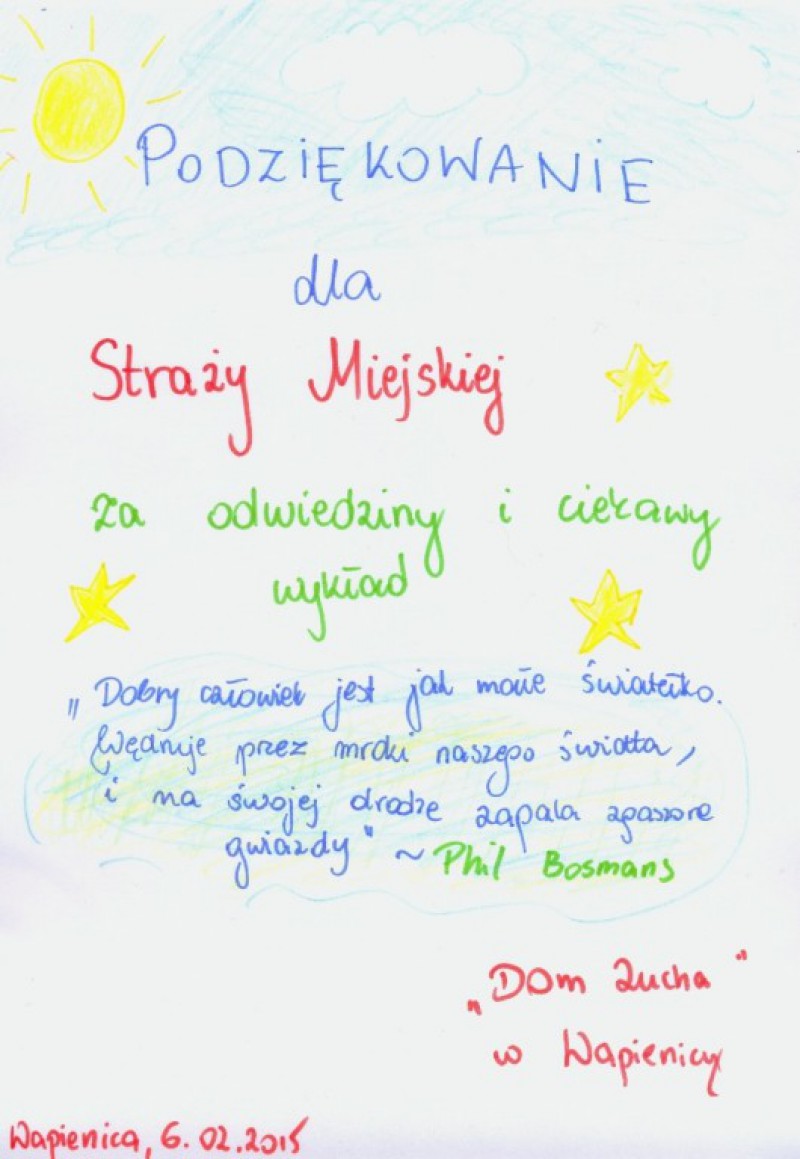 PODZIĘKOWANIE
dla
Straży Miejskiej
za odwiedziny i ciekawy
wykład
„Dobry człowiek jest jak małe światełko.
Wędruje przez mroki naszego świata,
i na swojej drodze zapala zgaszone
gwiazdy" ~ Phil Bosmans
„Dom Zucha"
w Wapienicy
Wapienica, 6.02.2015